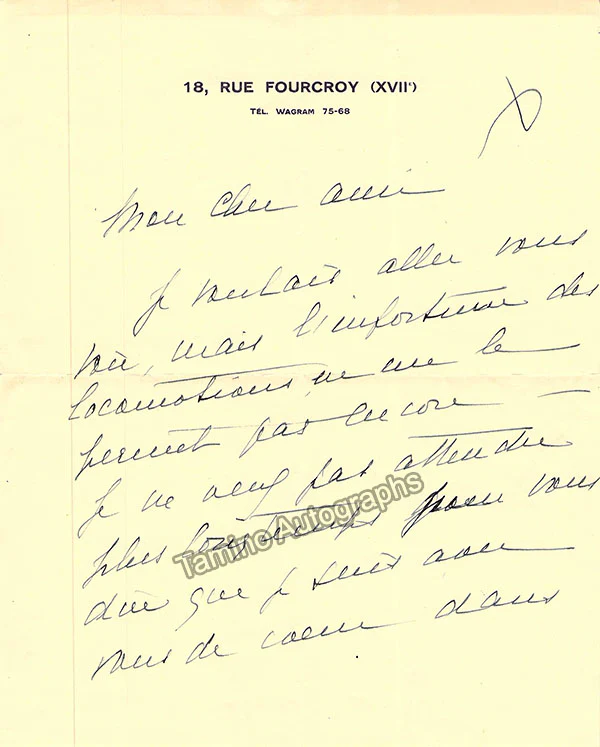 18, RUE FOURCROY (XVIIe)
TÉL. WAGRAM 75-68
Mon cher ami
Je voulais aller vous
voir, mais l'infortune des
locomotions ne me le
permet pas encore —
Je ne veux pas attendre
plus longtemps pour vous
dire que je suis avec
vous de coeur dans
Tamino Autographs